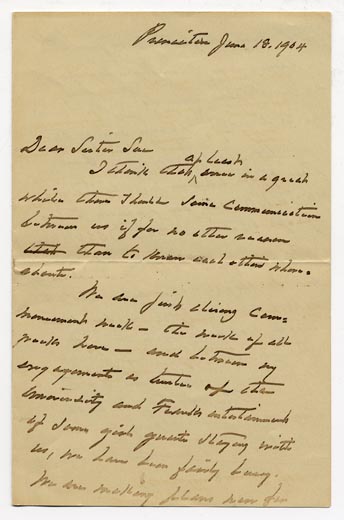 Princeton June 18. 1904
Dear Sister Sue
at least
I think that once in a great
while there should some communication
between us if for no other reason
than to know each others where-
abouts.
We are just closing Com-
mencement week - the week of all
weeks here - and between my
engagements as trustee of the
University and Frank's entertainment
of some girl guests staying with
us, we have been fairly busy.
We are making plans now for